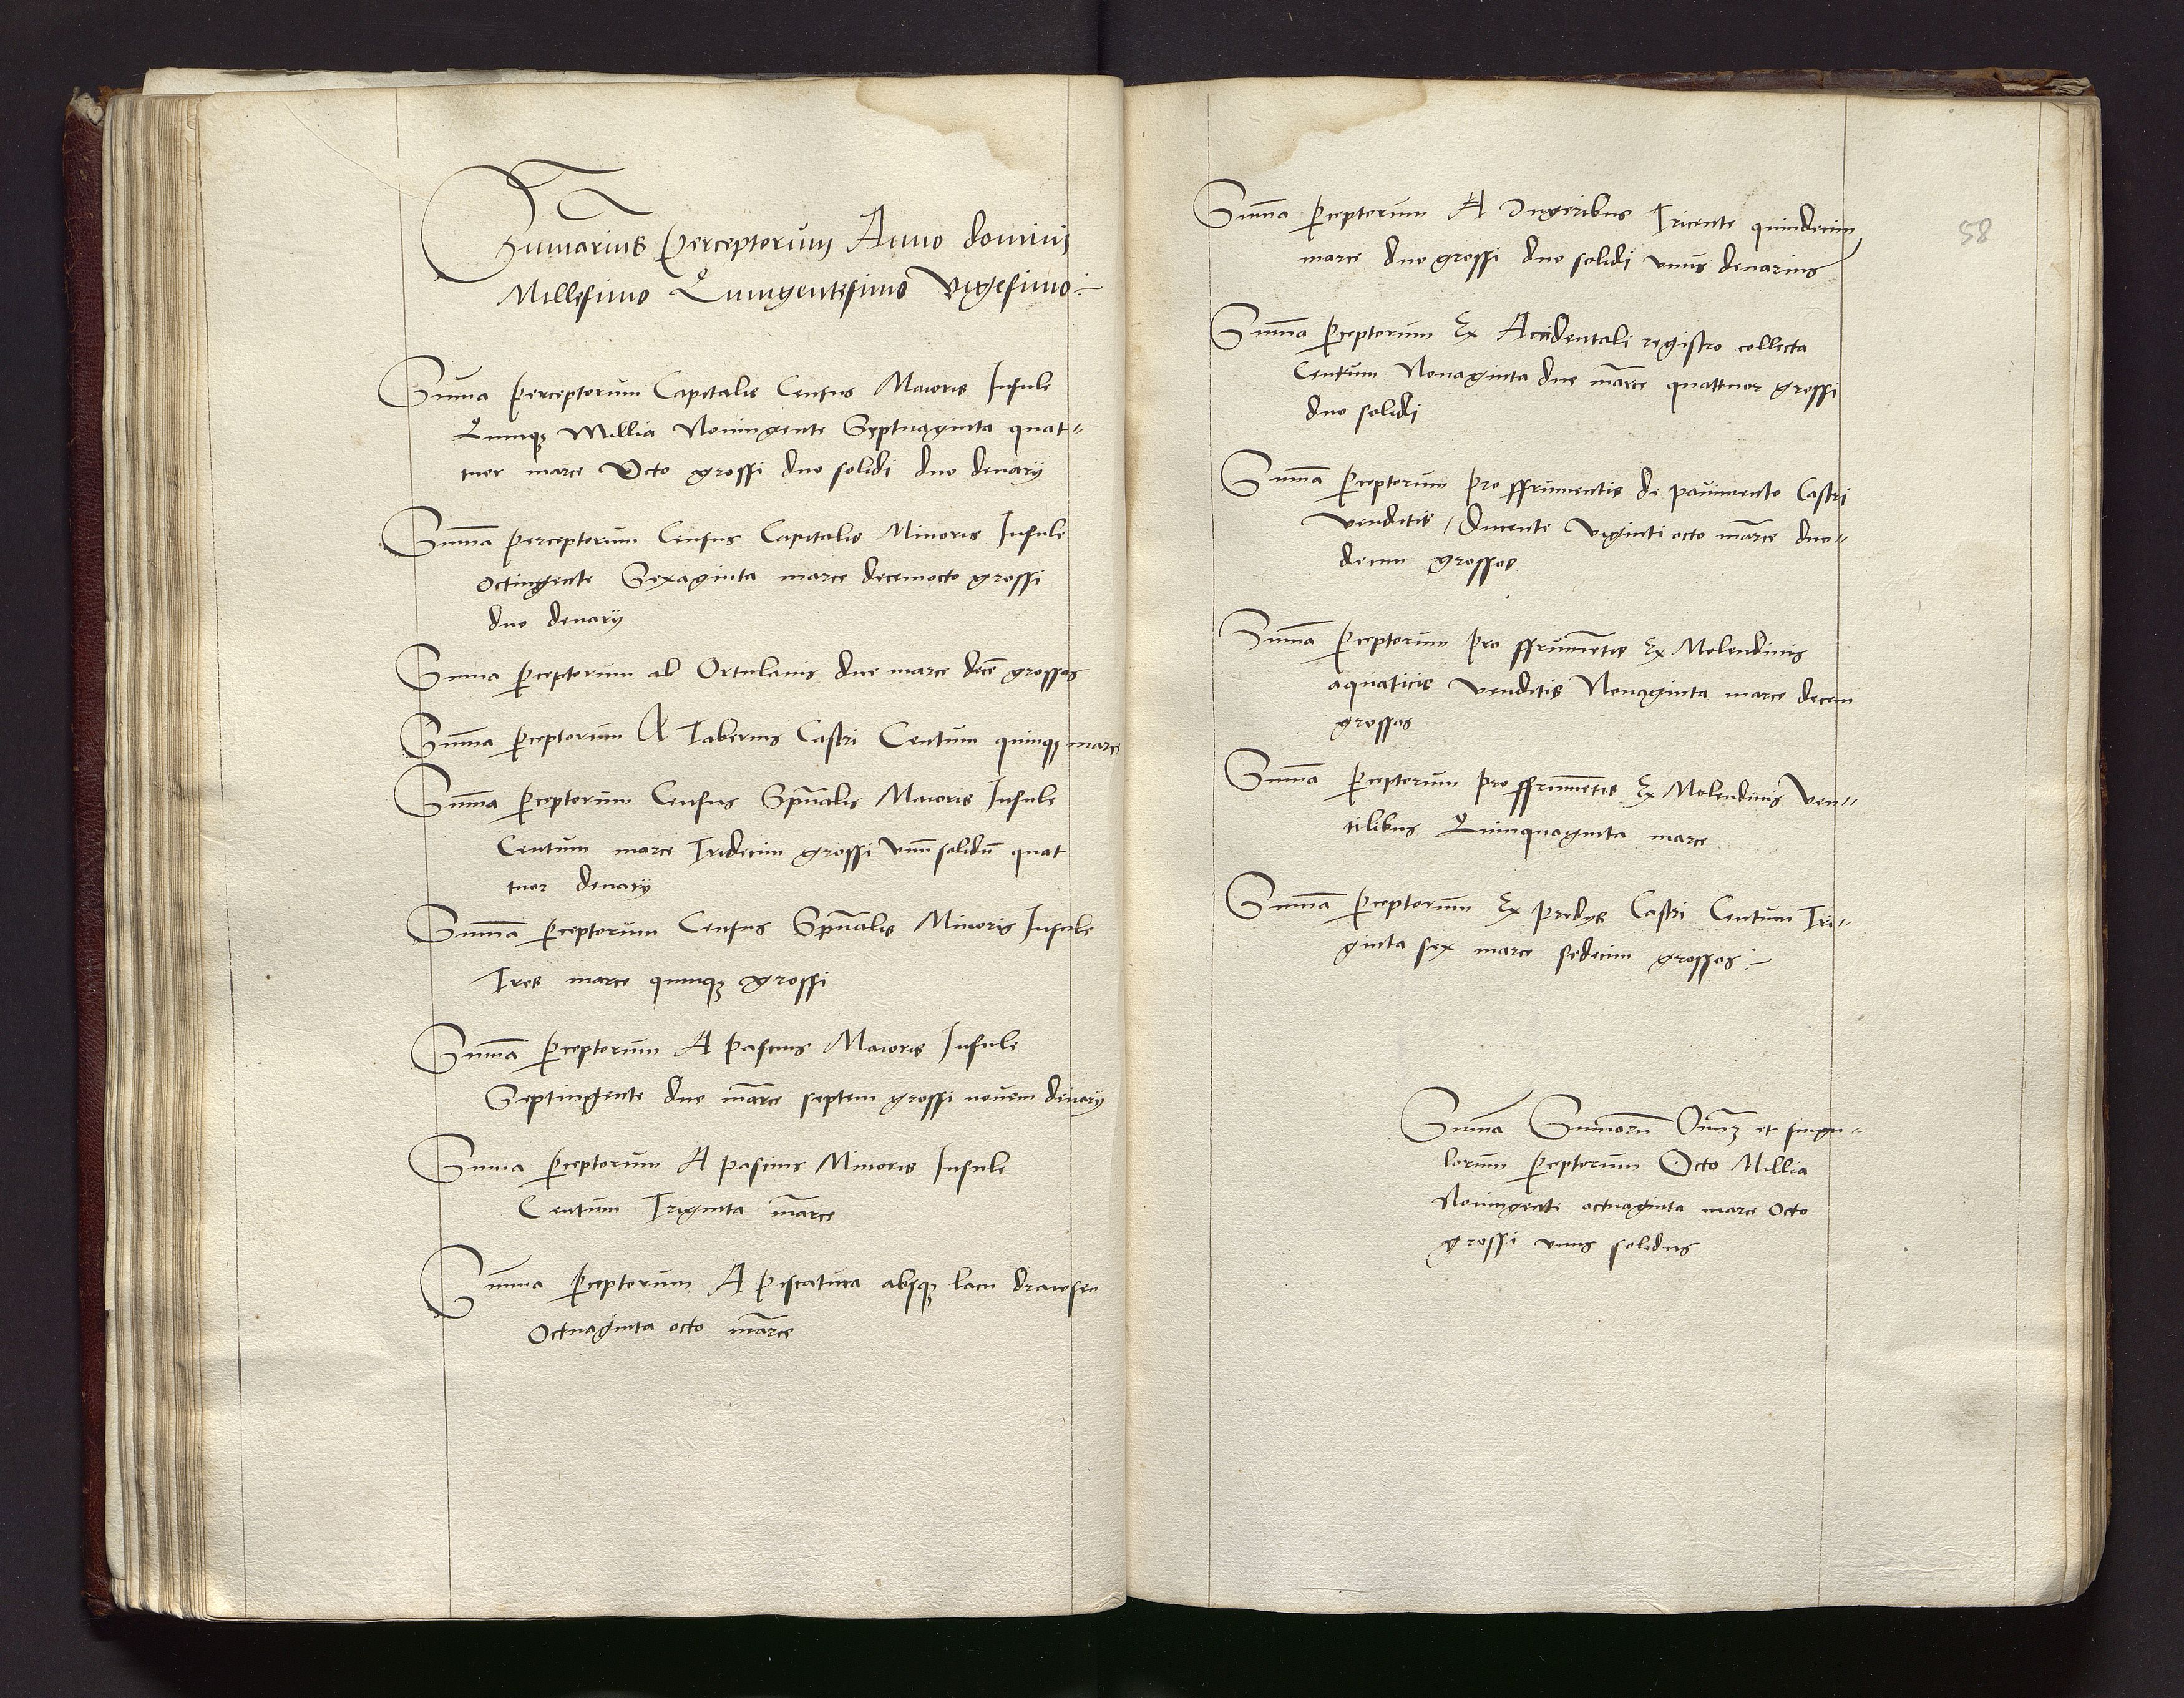 Sumarius perceptorum Anno domini
Millesimo Quingentesimo vigesimo
Suma perceptorum Capitalis Census Maioris Insule
Quinqz Millia Noningente Septuaginta quat-
tuor marce Octo grossi duo solidi duo denarij
Suma perceptorum Census Capitalis Minoris Insule
Octingente Sexaginta marce decemocto grossi
duo denarij
Suma perceptorum ab Ortulanis due marce dece grossos
Suma perceptorum A Tabernis Castri Centum quinqz marce
Suma perceptorum Census Spualis Maioris Insule
Centum marce Tridecim grossi vnu solidu quat
tuor denarij
Suma perceptorum Census Spualis Minoris Insule
Tres marce quinqz grossi
Suma perceptorum A pascuis Maioris Insule
Septingente due marce septem grossi nouem denarij
Suma perceptorum A pascuis Minoris Insule
Centum Triginta marce
Suma perceptorum A piscatura absqz lacu drawsen
Octuaginta octo marce
58
Suma perceptorum A Iugeribus Tricente quindecim
marce duo grossi duo solidi vnus denarius
Suma perceptorum Ex Accidentali registro collecta
Centum Nonaginta due marce quattuor grossi
duo solidi
Suma perceptorum pro ffrumentis de pauimento Castri
venditis / Ducente viginti octo marce duo-
decim grossos
Suma perceptorum pro ffrumetis Ex Molendinis
aquaticis venditis Nonaginta marce decem
grossos
Suma perceptorum pro ffrumetis Ex Molendinis ven-
tilibus Quinquaginta marce
Suma perceptorum Ex predys Castri Centum Tri-
ginta sex marce sedecim grossos
Suma Sumaru Oniuz et singu-
lorum perceptorum Octo Millia
Noningenti octuaginta marce Octo
grossi vnus solidus